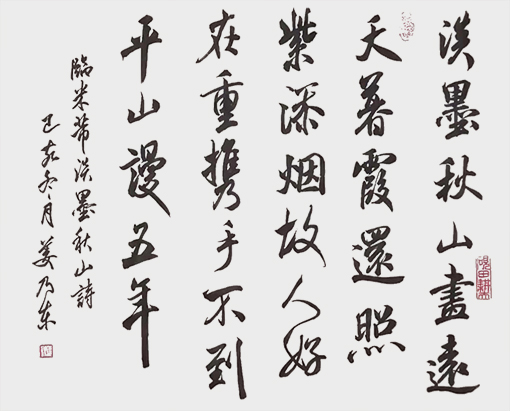 淡墨秋山畫遠
天暮霞還照
紫添烟故人好
在重携手不到
平山謾五年
臨米芾淡墨秋山詩
己亥冬月姜乃東